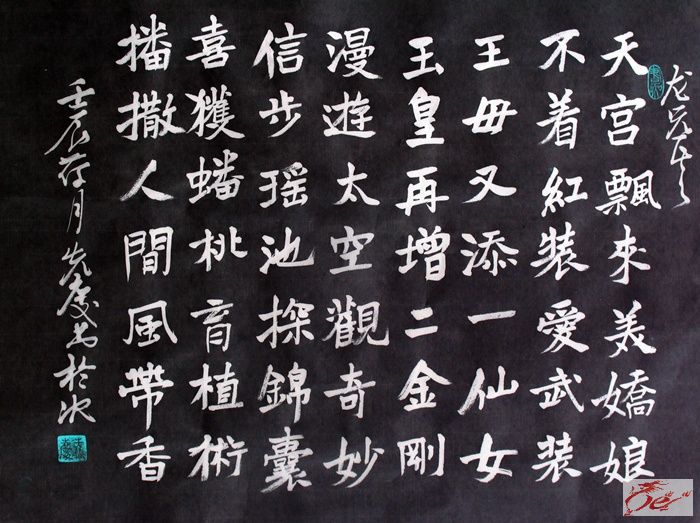 天宮飄來美嬌娘
不着紅装愛武装
王母又添一仙女
玉皇再增二金剛
漫遊太空觀奇妙
信步瑶池探錦囊
喜獲蟠桃育植術
播撒人間風帶香
壬辰荷月先慶書於沈